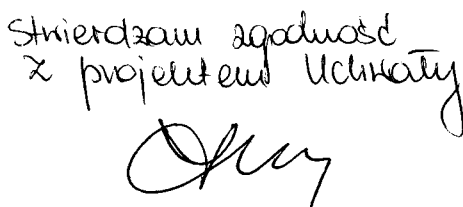 Stwierdzam zgodność
z projektem Uchwały